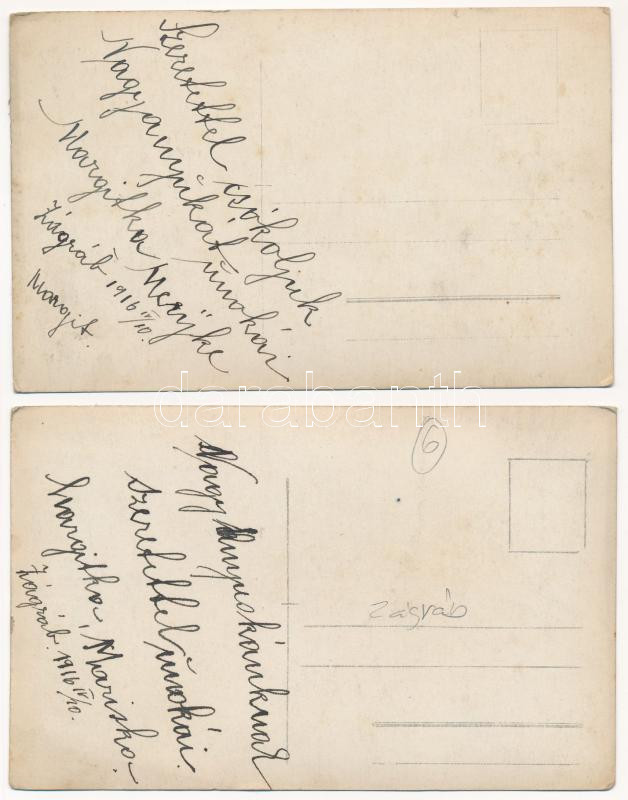 Szeretettel csókoljuk
Nagyanyikát unokái
Margitka Meryke
Zágráb 1916 IV/10.
Margit.
darabanth
6
Nagy Anyuskánknak
szeretettel unokái.
Margitka, Mariska.
Zágráb. 1916 IV/10.
Zágráb